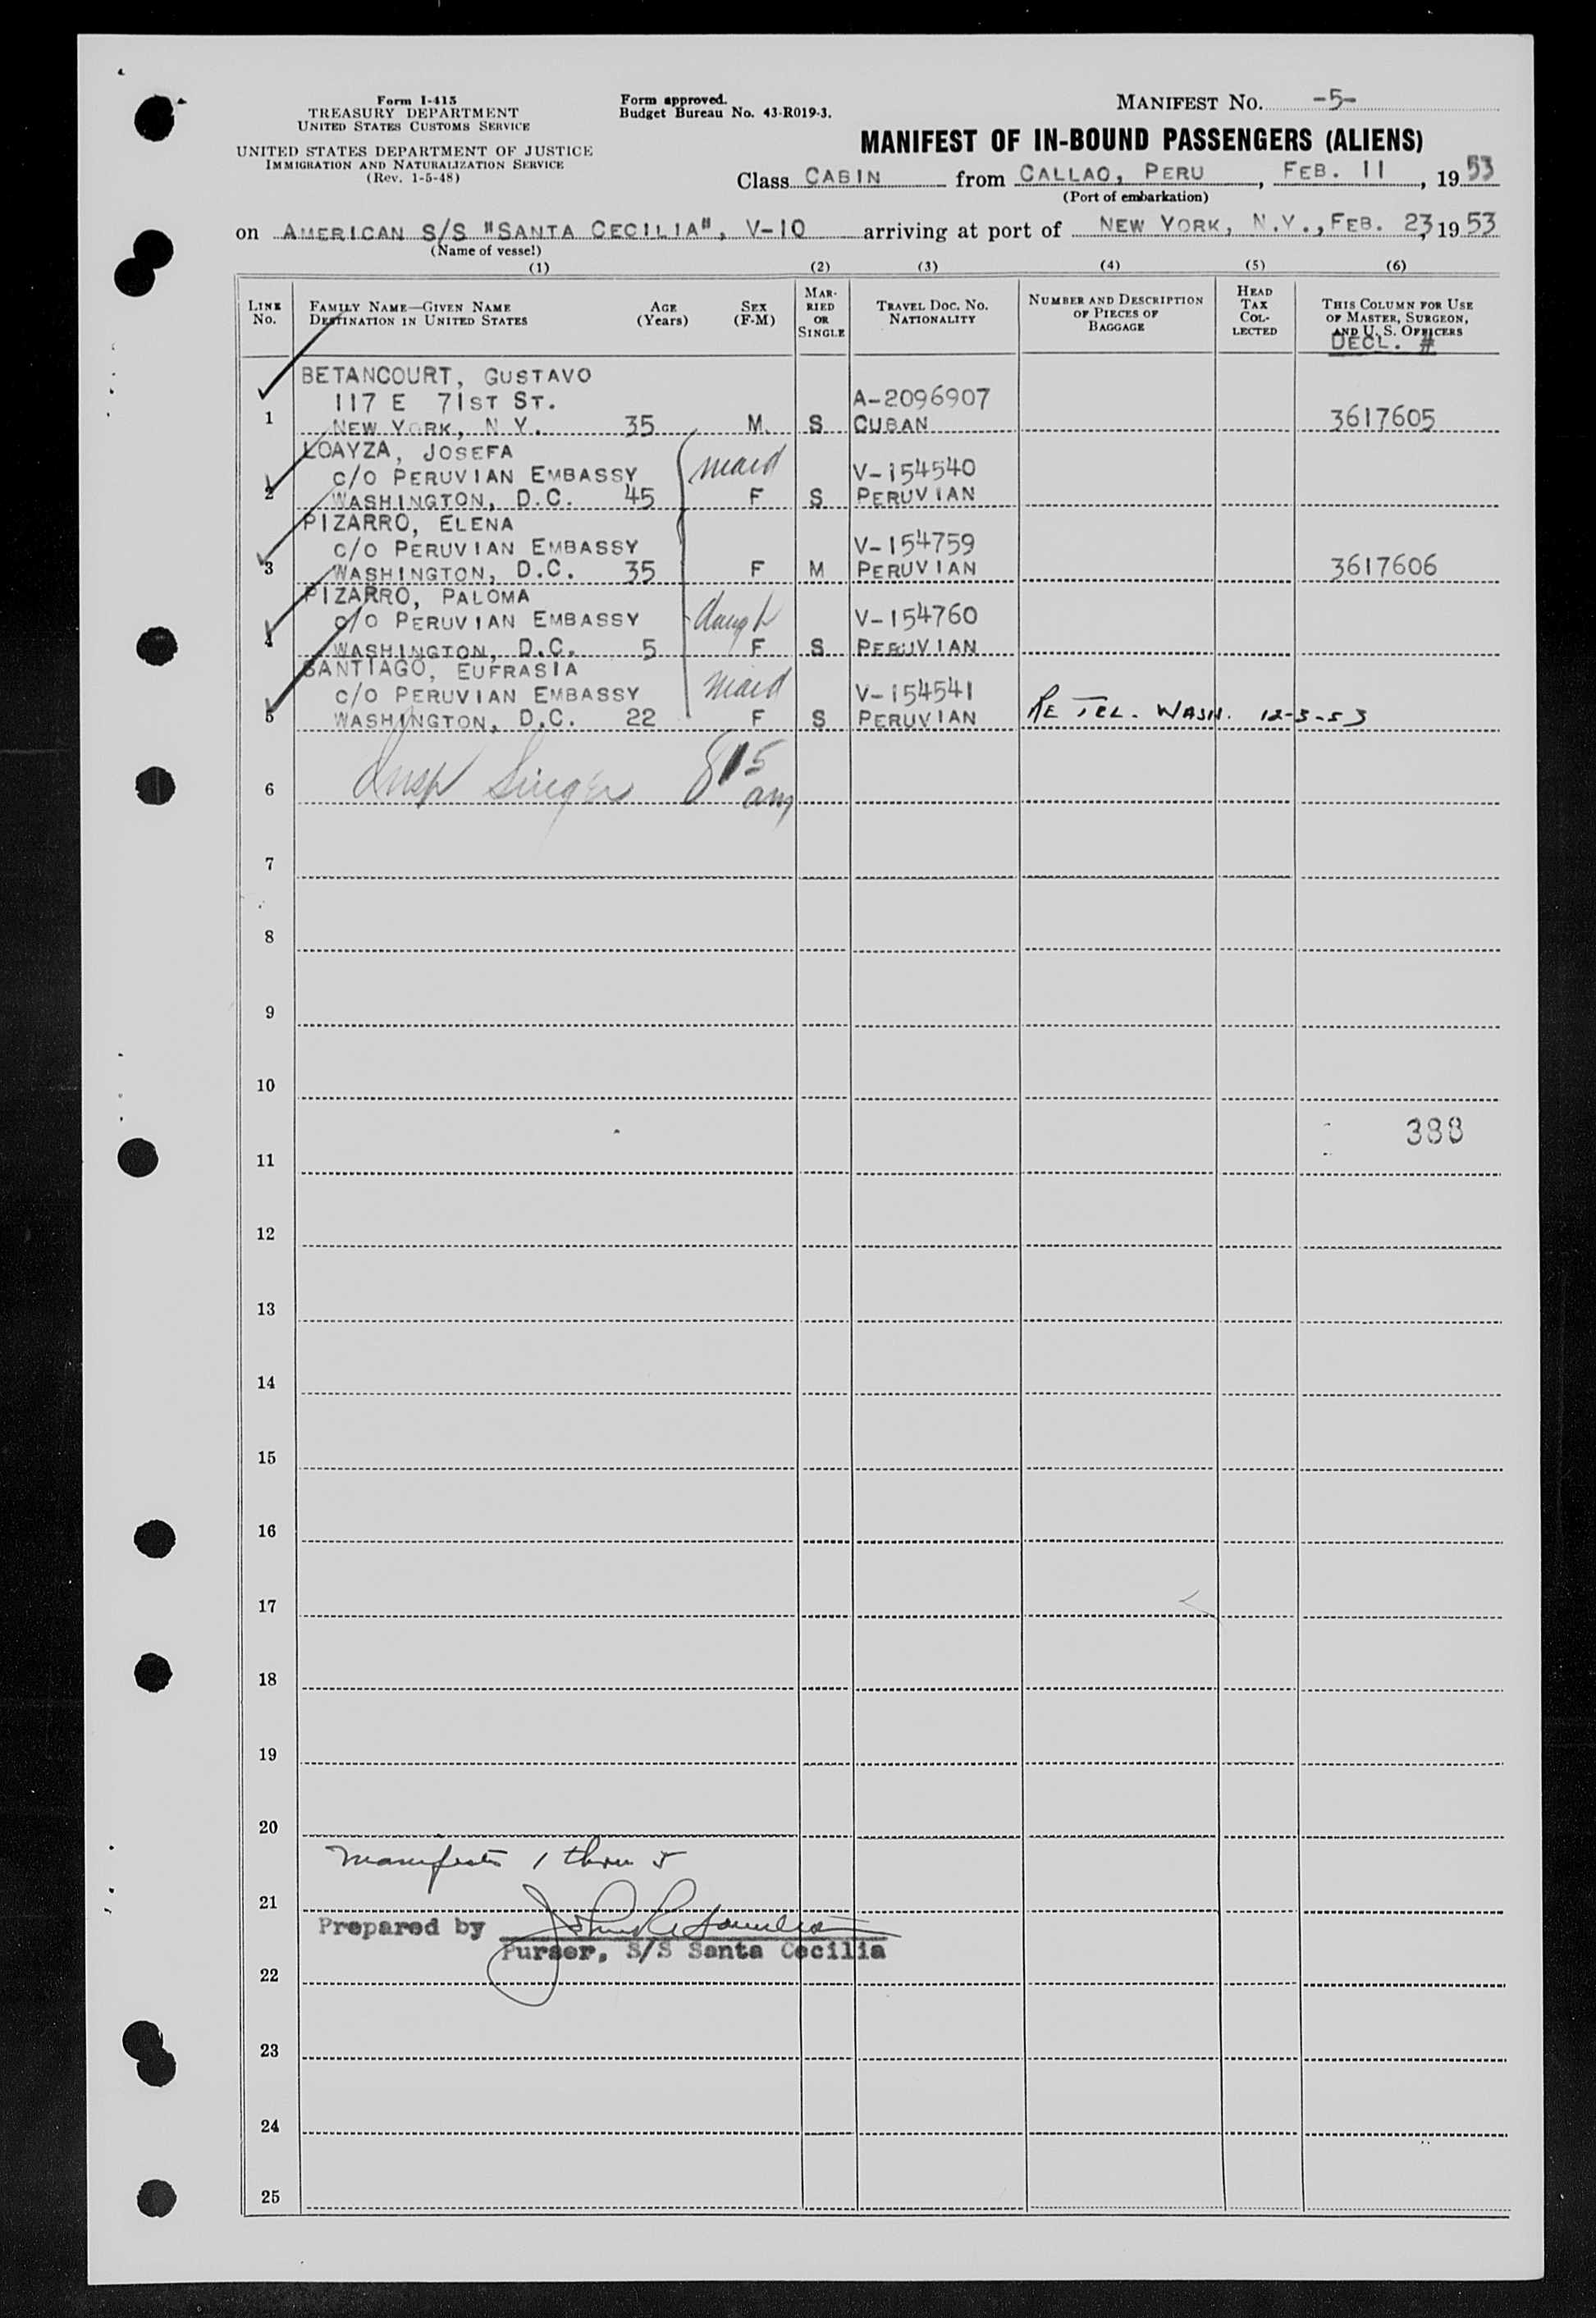 Form I-415
TREASURY DEPARTMENT
UNITED STATES CUSTOMS SERVICE
UNITED STATES DEPARTMENT OF JUSTICE
IMMIGRATION AND NATURALIZATION SERVICE
(Rev. 1-5-48)
Form approved.
Budget Bureau No. 43-R019-3.
MANIFEST NO. -5-
MANIFEST OF IN-BOUND PASSENGERS (ALIENS)
Class CABIN from CALLAO, PERU, FEB. 11, 1953
(Port of embarkation)
on AMERICAN S/S "SANTA CECILIA", V-10 arriving at port of NEW YORK, N.Y., FEB. 23, 1953
(Name of vessel)
(1) (2) (3) (4) (5) (6)
LINE No.
FAMILY NAME—GIVEN NAME
DESTINATION IN UNITED STATES
AGE (Years)
SEX (F-M)
MAR-
RIED
OR
SINGLE
TRAVEL DOC. NO.
NATIONALITY
NUMBER AND DESCRIPTION
OF PIECES OF
BAGGAGE
HEAD
TAX
COL-
LECTED
THIS COLUMN FOR USE
OF MASTER, SURGEON,
AND U. S. OFFICERS
DECL. #
BETANCOURT, GUSTAVO
117 E 71ST ST. A-2096907
1 NEW YORK, N.Y. 35 M. S CUBAN 3617605
LOAYZA, JOSEFA
C/O PERUVIAN EMBASSY maid V-154540
2 WASHINGTON, D.C. 45 F S PERUVIAN
PIZARRO, ELENA
C/O PERUVIAN EMBASSY V-154759
3 WASHINGTON, D.C. 35 F M PERUVIAN 3617606
PIZARRO, PALOMA
C/O PERUVIAN EMBASSY daught V-154760
4 WASHINGTON, D.C. 5 F S PERUVIAN
SANTIAGO, EUFRASIA
C/O PERUVIAN EMBASSY maid V-154541
5 WASHINGTON, D.C. 22 F S PERUVIAN RE TEL. WASH. 12-3-53
6 Insp Singer 815
am
7
8
9
10
388
11
12
13
14
15
16
17
18
19
20
Manifests 1 thru 5
21
Prepared by
Purser, S/S Santa Cecilia
22
23
24
25